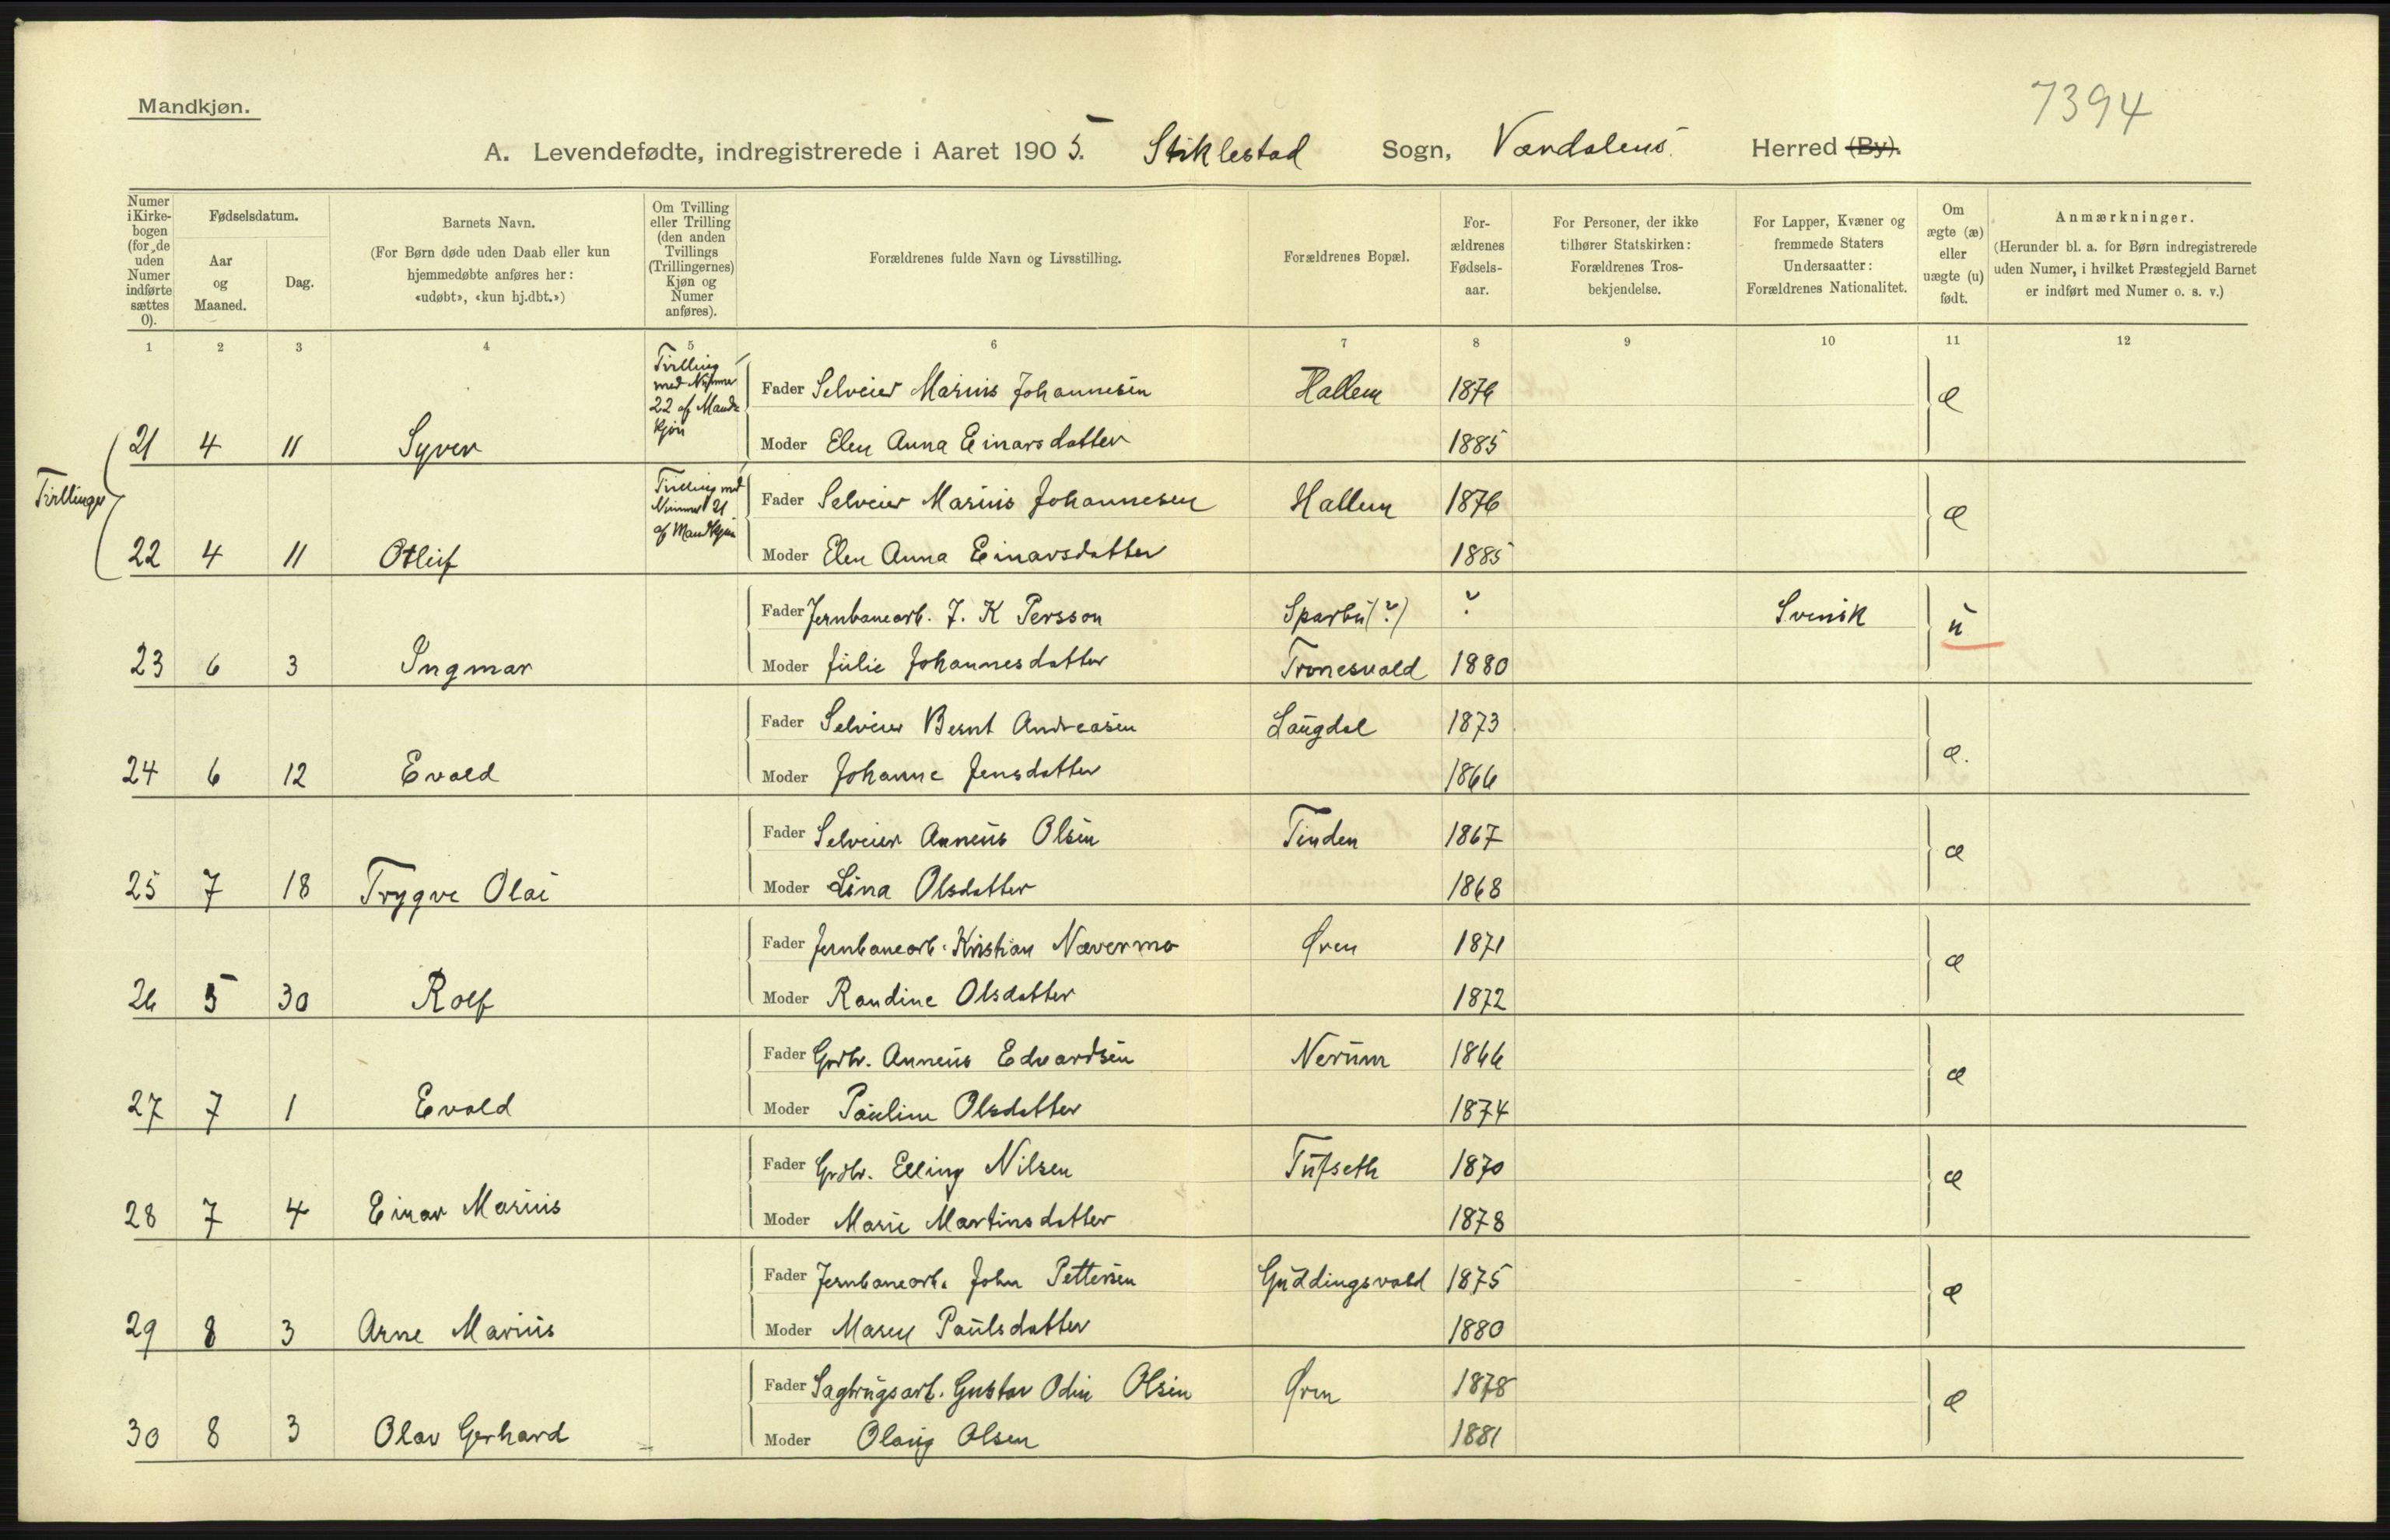 Mandkjøn.
7394
A. Levendefødte, indregistrerede i Aaret 1905. Stiklestad Sogn, Værdalens Herred (By).
Numer i Kirkebogen (for de uden Numer indførte sættes 0).
Fødselsdatum.
Aar og Maaned.
Dag.
Barnets Navn.
(For Børn døde uden Daab eller kun hjemmedøbte anføres her: «udøbt», «kun hj.dbt.»)
Om Tvilling eller Trilling (den anden Tvillings (Trillingernes) Kjøn og Numer anføres).
Forældrenes fulde Navn og Livsstilling.
Forældrenes Bopæl.
Forældrenes Fødselsaar.
For Personer, der ikke tilhører Statskirken: Forældrenes Trosbekjendelse.
For Lapper, Kvæner og fremmede Staters Undersaatter: Forældrenes Nationalitet.
Om ægte (æ) eller uægte (u) født.
Anmærkninger.
(Herunder bl. a. for Børn indregistrerede uden Numer, i hvilket Præstegjeld Barnet er indført med Numer o. s. v.)
1 2 3 4 5 6 7 8 9 10 11 12
Tvillinger
Tvilling med Nummer 22 af Mandkjøn
Fader Selveier Marius Johannesen Hallem 1876 æ
21 4 11 Syver Moder Elen Anna Einarsdatter 1885
Tvilling med Nummer 21 af Mandkjøn
Fader Selveier Marius Johannesen Hallem 1876 æ
22 4 11 Otleif Moder Elen Anna Einarsdatter 1885
Fader Jernbanearb. J. K Persson Sparbu (?) ? Svensk u
23 6 3 Ingmar Moder Julie Johannesdatter Tronesvald 1880
Fader Selveier Bernt Andreasen Laugdal 1873 æ.
24 6 12 Evald Moder Johanne Jensdatter 1866
Fader Selveier Anneus Olsen Tinden 1867 æ
25 7 18 Trygve Olai Moder Lina Olsdatter 1868
Fader Jernbanearb. Kristian Nævermo Øren 1871 æ
26 5 30 Rolf Moder Randine Olsdatter 1872
Fader Grdbr. Anneus Edvardsen Nerum 1866 æ
27 7 1 Evald Moder Pauline Olsdatter 1874
Fader Grdbr. Elling Nilsen Tufseth 1870 æ
28 7 4 Einar Marius Moder Marie Martinsdatter 1878
Fader Jernbanearb. John Pettersen Guddingsvald 1875 æ
29 8 3 Arne Marius Moder Maren Paulsdatter 1880
Fader Sagbrugsarb. Gustav Odin Olsen Øren 1878 æ
30 8 3 Olav Gerhard Moder Olaug Olsen 1881